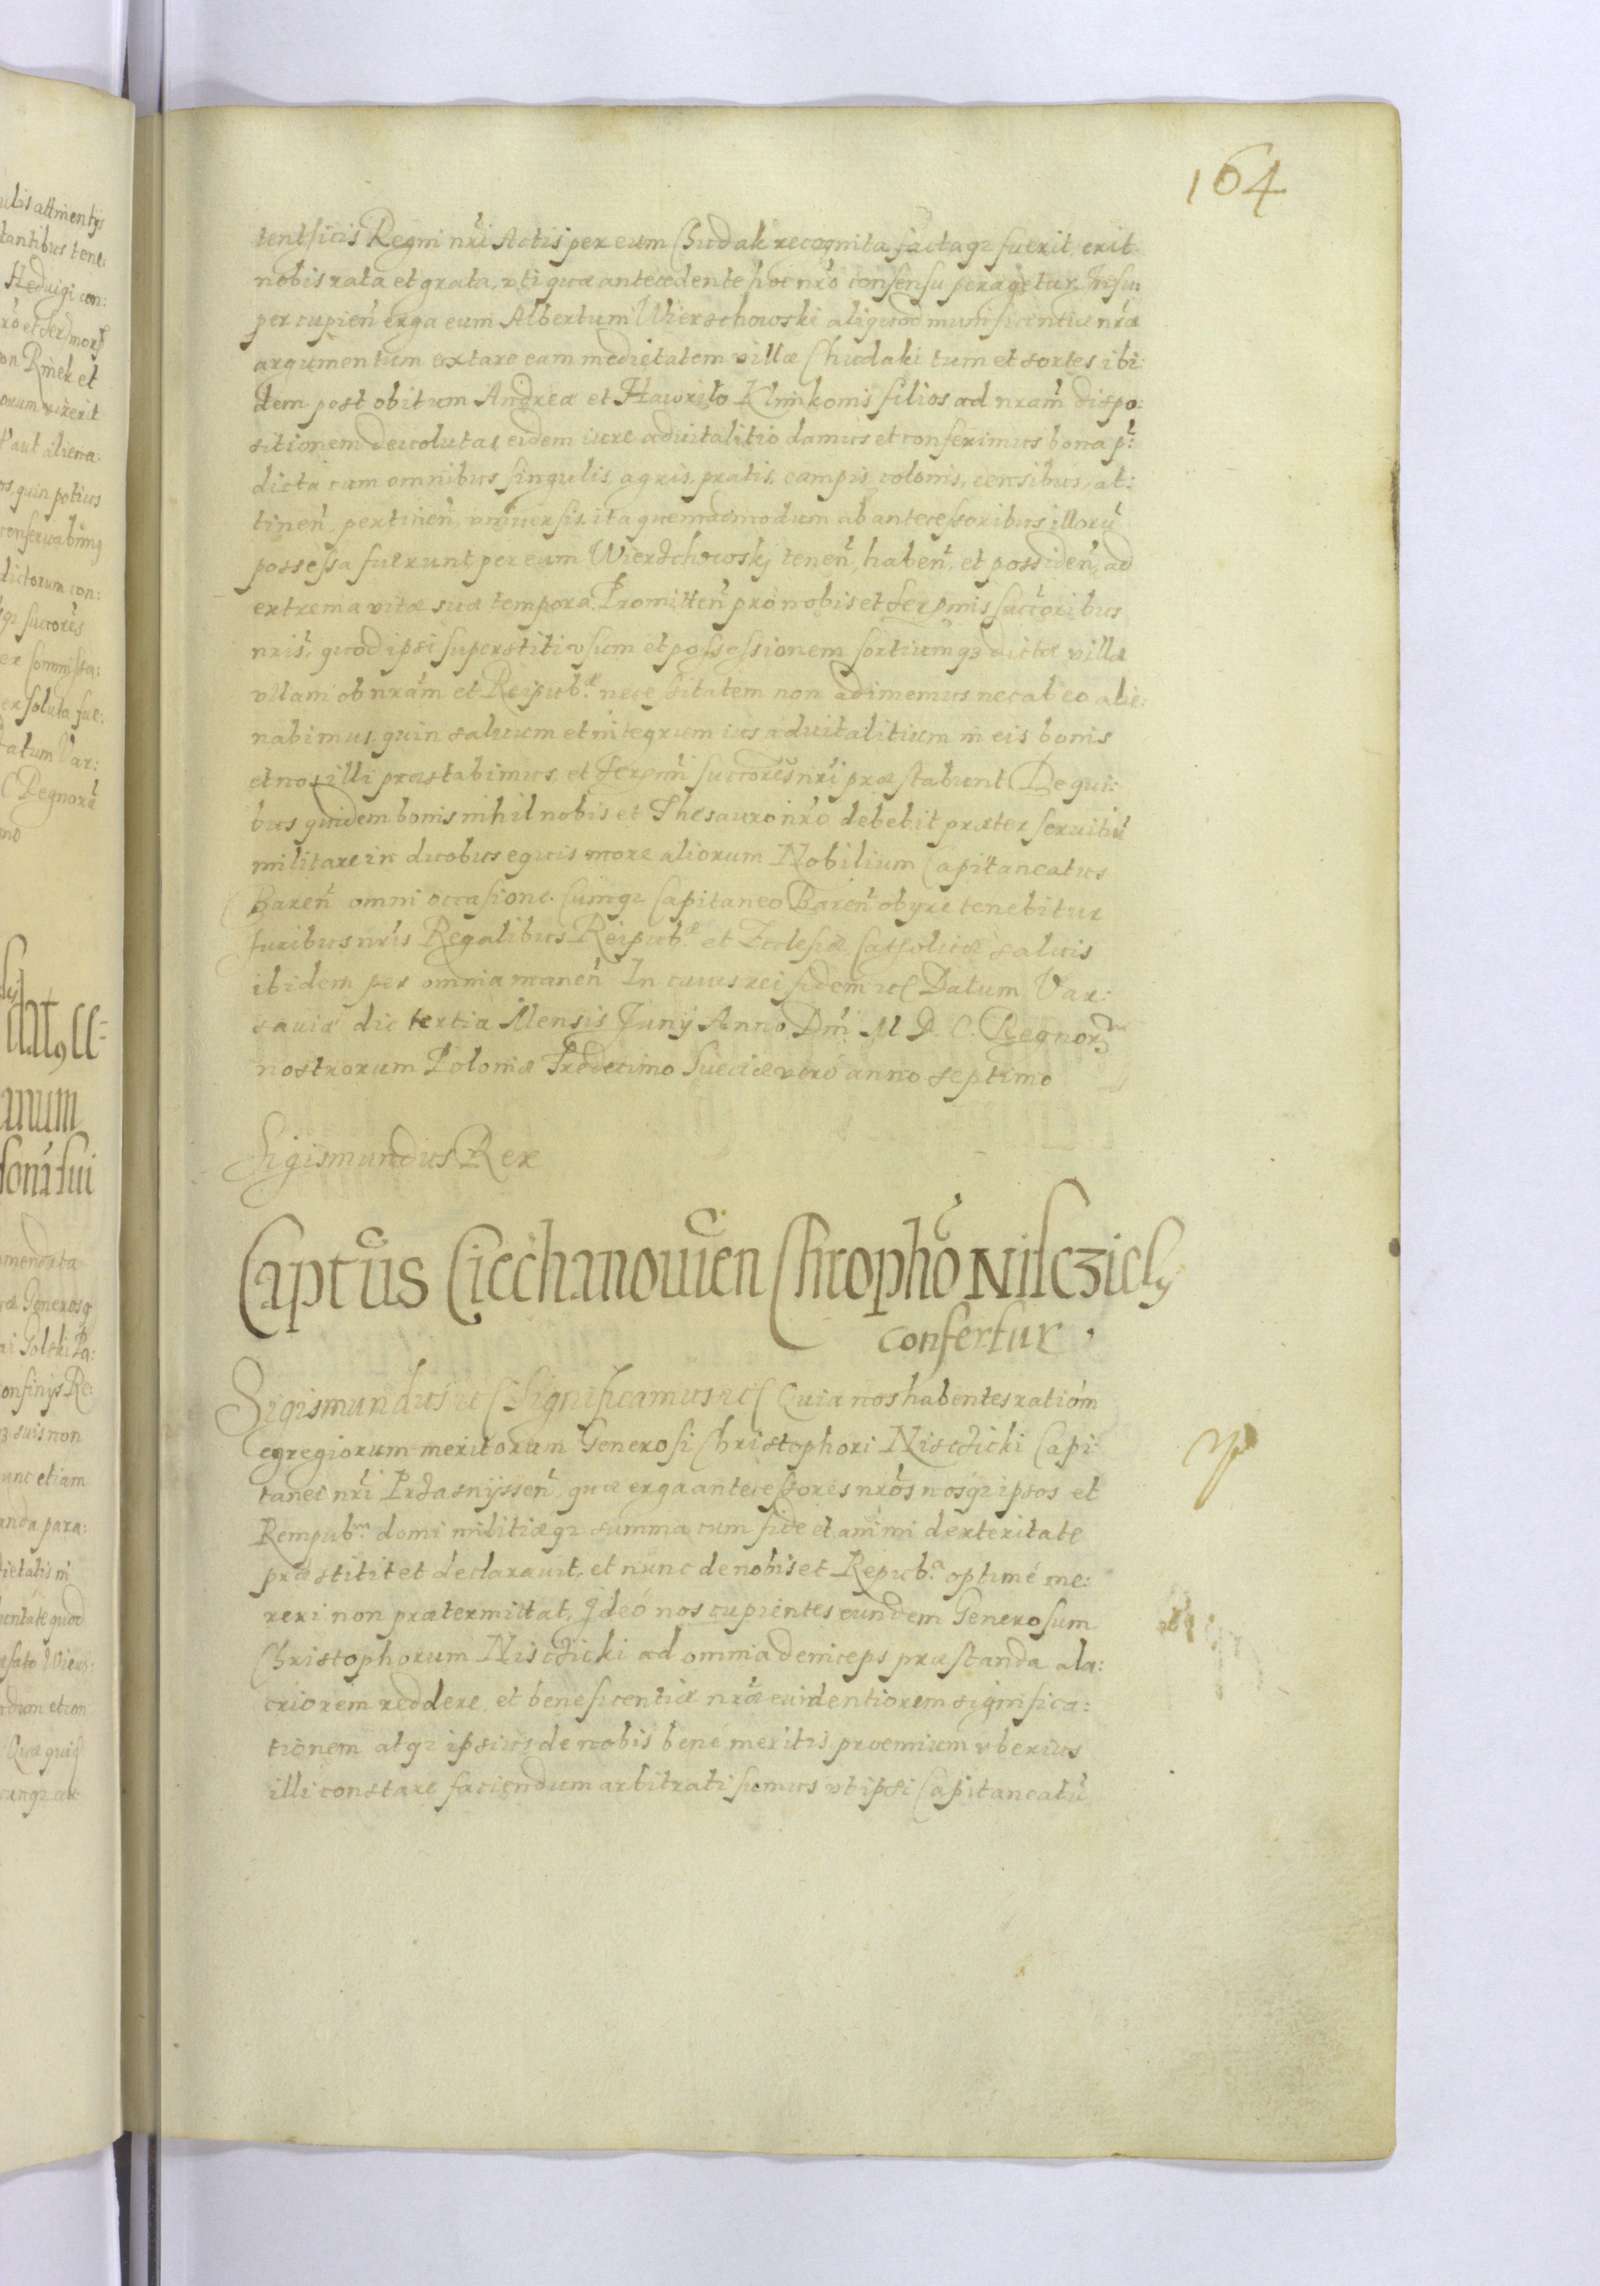 164
tenticis Regni nr̃i Actis per eum Chudak recognita factaqз fuerit, erit
nobis rata et grata, uti quæ antecedente hoc nr̃o consensu peragetur. Insu
per cupien̄ erga eum Albertum Wierzchowski aliquod munificentiæ nr̃æ
argumentum extare eam medietatem villæ Chudaki tum et sortes ibi:
dem post obitum Andreæ et Hawriło Klimkonis filios ad nram̃ dispo:
sitionem deuolutas eidem iure aduitalitio damus et conferimus bona p̄:
dicta cum omnibus singulis, agris, pratis, campis, colonis, censibus, at:
tinen̄, pertinen̄, vniuersis, ita quemadmodum ab antecessoribus illorū
possessa fuerunt per eum Wierzchowskj tenen̄, haben̄, et possiden̄, ad
extrema vitæ suæ tempora. Promitten̄ pro nobis et Serp̄mis succ̄oribus
nris̄, quod ipsi superstiti vsum et possessionem sortiumqз dictæ villæ
vllam ob nram̃ et Reipub.æ necessitatem non adimemus nec ab eo alie:
nabimus, quin saluum et integrum ius aduitalitium in eis bonis
et nos illi præstabimus, et Serenm̄i succores̄ nr̃i præstabunt De qui:
bus quidem bonis nihil nobis et Thesauro nr̃o debebit præter seruitiū
militare in duobus equis more aliorum Nobilium Capitaneatus
Baren̄ omni occasione. Cumqз Capitaneo Baren̄ obyre tenebitur
Iuribus nr̃is Regalibus Reipub.æ et Ecclesiæ Catholicæ saluis
ibidem per omnia manen̄ In cuius rei fidem etc Datum Var:
sauiæ die tertia Mensis Junij Anno Dn̄i M D. C. Regnorum
nostrorum Poloniæ Tredecimo Sueciæ vero anno septimo
Sigismundus Rex
Captūs Ciechanouien Chrophõ Nisczicky
confertur.
Sigismundus etc Significamus etc Quia nos habentes ration̄
egregiorum meritorum Generosi Christophori Nisczicki Capi
tanei nr̃i Przasnyssen̄, quæ erga antecessores nr̃os nosqз ipsos et
Rempub.m domi militiæqз summa cum fide et animi dexteritate
præstitit et declarauit, et nunc de nobis et Repub.a optimè me:
reri non prætermittat, Ideò nos cupientes eundem Generosum
Christophorum Nisczicki ad omnia deinceps præstanda ala:
criorem reddere, et beneficentiæ nr̃æ euidentiorem significa:
tionem atqз ipsius de nobis benè meritis præmium vberius
illi constare faciendum arbitrati sumus vt ipsi Capitaneatū